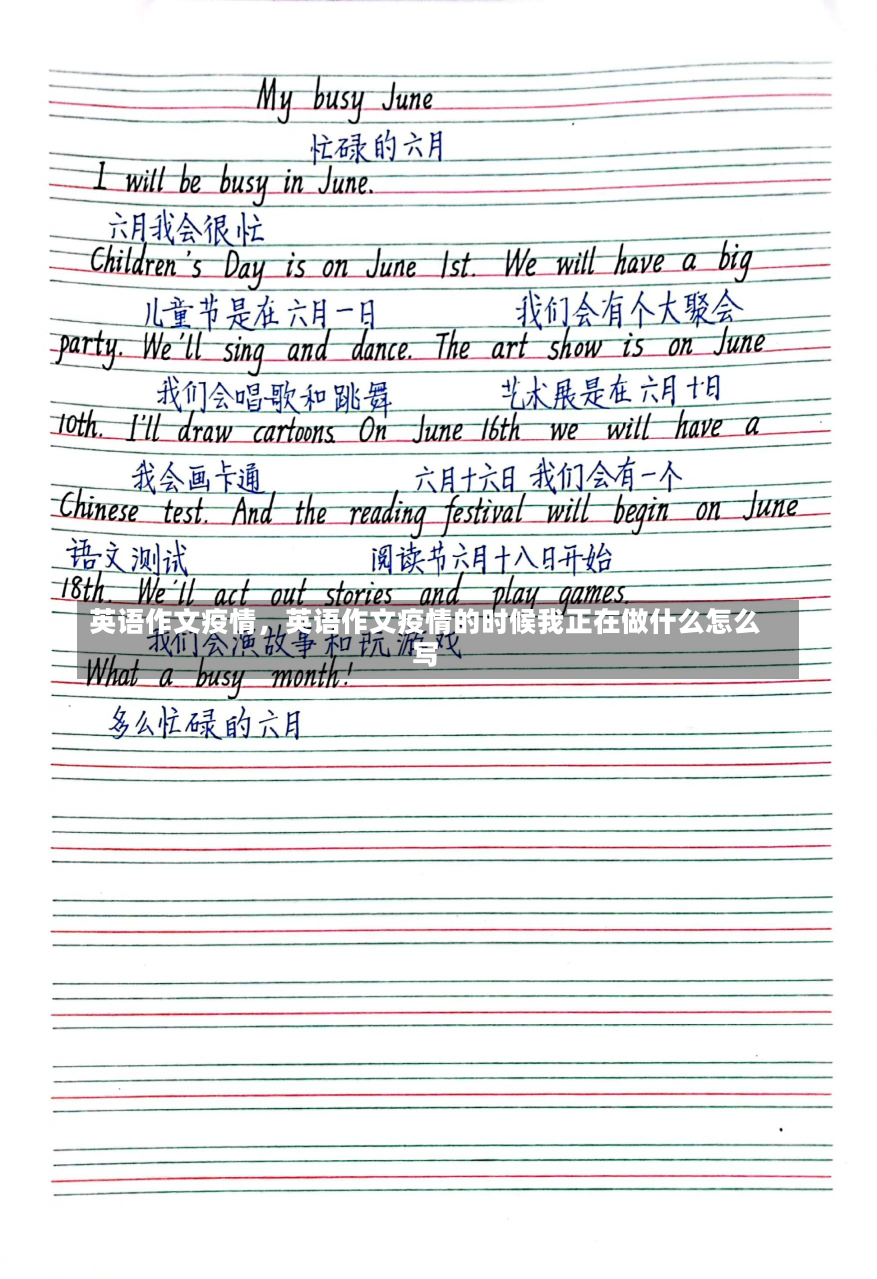 My busy June
忙碌的六月
I will be busy in June.
六月我会很忙
Children's Day is on June 1st. We will have a big
儿童节是在六月一日 我们会有个大聚会
party. We'll sing and dance. The art show is on June
我们会唱歌和跳舞 艺术展是在六月十日
10th. I'll draw cartoons. On June 16th we will have a
我会画卡通 六月十六日 我们会有一个
Chinese test. And the reading festival will begin on June
语文测试 阅读节六月十八日开始
18th. We'll act out stories and play games.
英语作文疫情，英语作文疫情的时候我正在做什么怎么
写
我们会演故事和玩游戏
What a busy month!
多么忙碌的六月